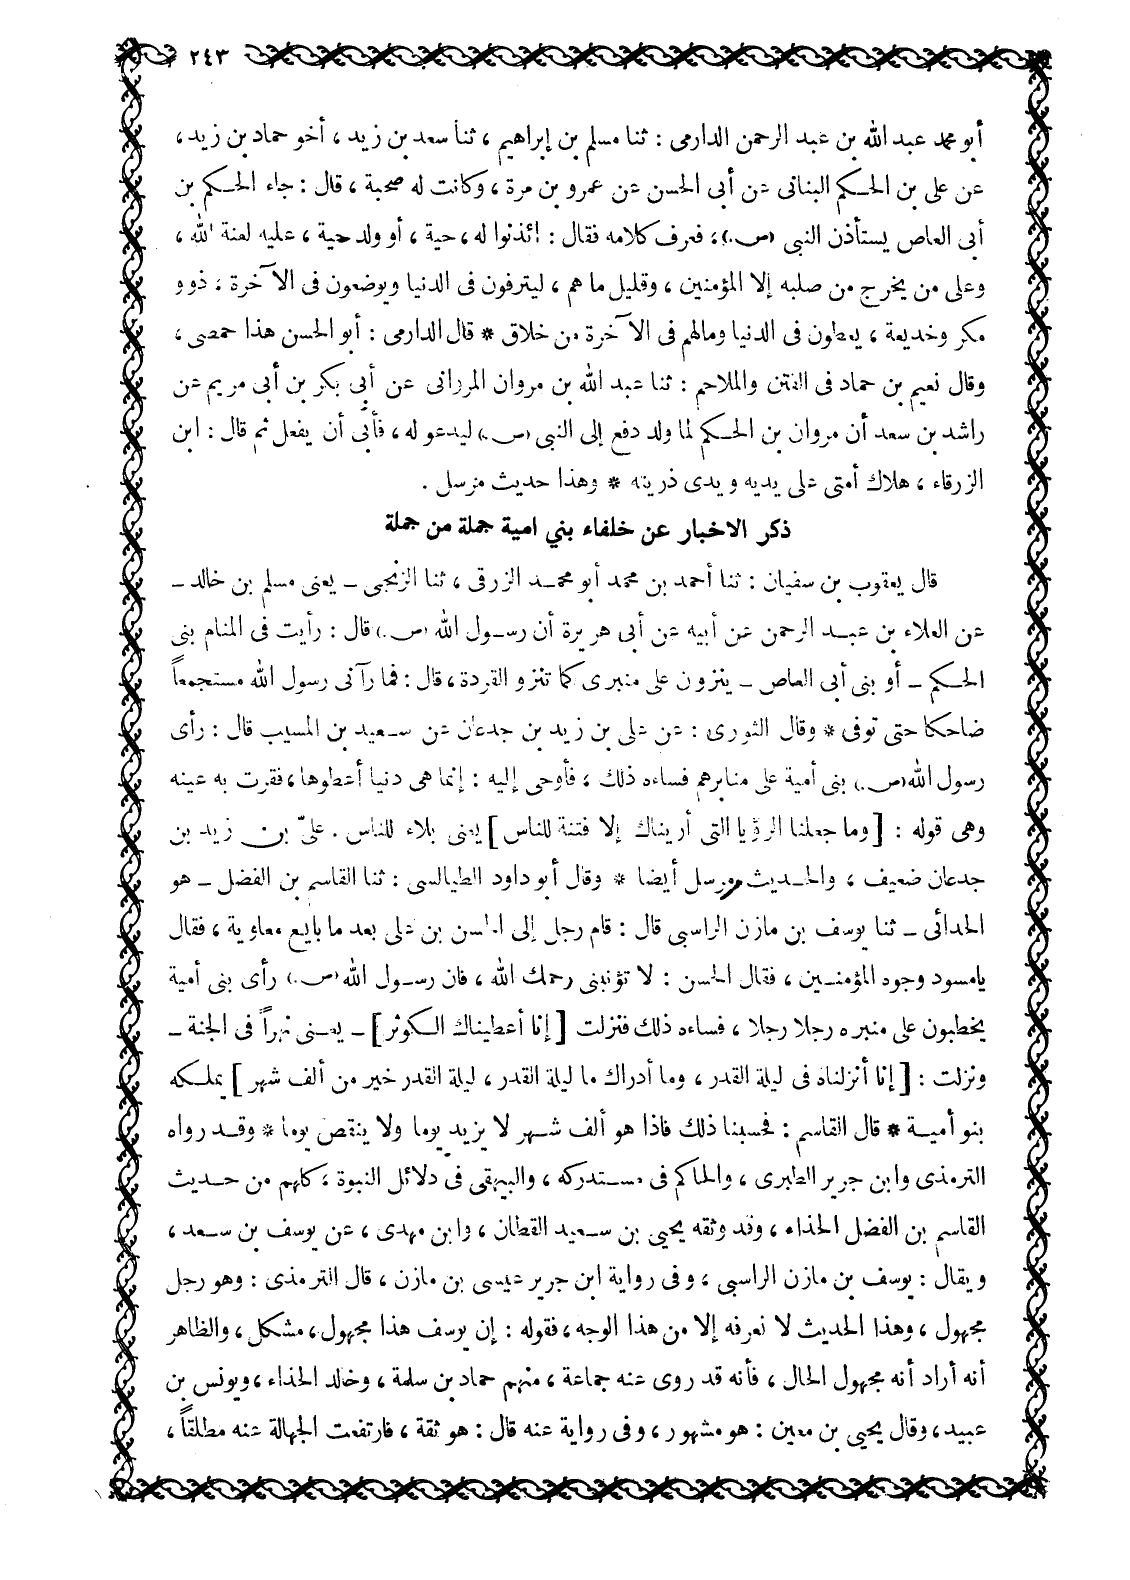 ٢٤٣
أبو محمد عبد الله بن عبد الرحمن الدارمى : ثنا مسلم بن إبراهيم ، ثنأ سعد بن زيد ، أخو حماد بن زيد ،
عن على بن الحكم البنانى عن أبى الحسن عن عمرو بن مرة ، وكانت له صحبة ، قال : جاء الحكم بن
أبى العاص يستأذن النبى (ص.) ، فعرف كلامه فقال : ائذنوا له ، حية ، أو ولد حية ، عليه لعنة الله ،
وعلى من يخرج من صلبه إلا المؤمنين ، وقليل ما هم ، ليترفون فى الدنيا ويوضعون فى الآخرة ، ذوو
مكر وخديعة ، يعطون فى الدنيا ومالهم فى الآخرة من خلاق * قال الدارمى : أبو الحسن هذا حمصى ،
وقال نعيم بن حماد فى الفتن والملاحم : ثنا عبد الله بن مروان المرزانى عن أبى بكر بن أبى مريم عن
راشد بن سعد أن مروان بن الحكم لما ولد دفع إلى النبى (ص.) ليدعو له ، فأبى أن يفعل ثم قال : ابن
الزرقاء ، هلاك أمتى على يديه ويدى ذريته * وهذا حديث مرسل .
ذكر الاخبار عن خلفاء بني امية جملة من جملة
قال يعقوب بن سفيان : ثنا أحمد بن محمد أبو محمد الزرقى ، ثنا الزنجى ــ يعنى مسلم بن خالد ــ
عن العلاء بن عبد الرحمن عن أبيه عن أبى هريرة أن رسول الله (ص.) قال : رأيت فى المنام بنى
الحكم ــ أو بنى أبى العاص ــ ينزون على منبرى كما تنزو القردة ، قال : فما رآنى رسول الله مستجمعاً
ضاحكا حتى توفى * وقال الثورى : عن على بن زيد بن جدعان عن سعيد بن المسيب قال : رأى
رسول الله (ص.) بنى أمية على منابرهم فساءه ذلك ، فأوحى إليه : إنما هى دنيا أعطوها ، فقرت به عينه
وهى قوله : [وما جعلنا الرؤيا التى أريناك إلا فتنة للناس] يعنى بلاء للناس . علىّ بن زيد بن
جدعان ضعيف ، والحديث مرسل أيضا * وقال أبو داود الطيالسى : ثنا القاسم بن الفضل ــ هو
الحدائى ــ ثنا يوسف بن مازن الراسبى قال : قام رجل إلى الحسن بن على بعد ما بايع معاوية ، فقال
يامسود وجوه المؤمنين ، فقال الحسن : لا تؤنبنى رحمك الله ، فان رسول الله (ص.) رأى بنى أمية
يخطبون على منبره رجلا رجلا ، فساءه ذلك فنزلت [إنا أعطيناك الكوثر] ــ يعنى نهراً فى الجنة ــ
ونزلت : [إنا أنزلناه فى ليلة القدر ، وما أدراك ما ليلة القدر ، ليلة القدر خير من ألف شهر] يملكه
بنو أمية * قال القاسم : فحسبنا ذلك فاذا هو ألف شهر لا يزيد يوما ولا ينقص يوما * وقد رواه
الترمذى وابن جرير الطبرى ، والحاكم فى مستدركه ، والبيهقى فى دلائل النبوة ، كلهم من حديث
القاسم بن الفضل الحذاء ، وقد وثقه يحيى بن سعيد القطان ، وابن مهدى ، عن يوسف بن سعد ،
ويقال : يوسف بن مازن الراسبى ، وفى رواية ابن جرير عيسى بن مازن ، قال الترمذى : وهو رجل
مجهول ، وهذا الحديث لا نعرفه إلا من هذا الوجه ، فقوله : إن يوسف هذا مجهول ، مشكل ، والظاهر
أنه أراد أنه مجهول الحال ، فأنه قد روى عنه جماعة ، منهم حماد بن سلمة ، وخالد الحذاء ، ويونس بن
عبيد ، وقال يحيى بن معين : هو مشهور ، وفى رواية عنه قال : هو ثقة ، فارتفعت الجهالة عنه مطلقاً ،